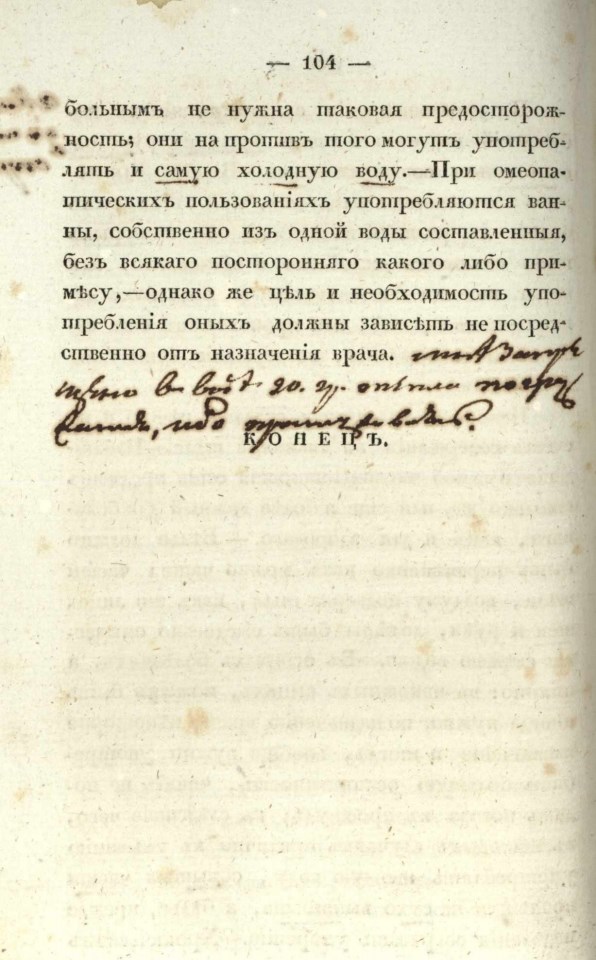 — 104 —
больнымъ не нужна таковая предосторож-
ность; они на противъ того могутъ употреб-
лять и самую холодную воду.—При омеопа-
тическихъ пользованіяхъ употребляются ван-
ны, собственно изъ одной воды составленныя,
безъ всякаго посторонняго какого либо при-
мѣсу,—однако же цѣль и необходимость упо-
требленія оныхъ должны зависѣть не посред-
ственно отъ назначенія врача.
въ водѣ 20. гр.
КОНЕЦЪ.